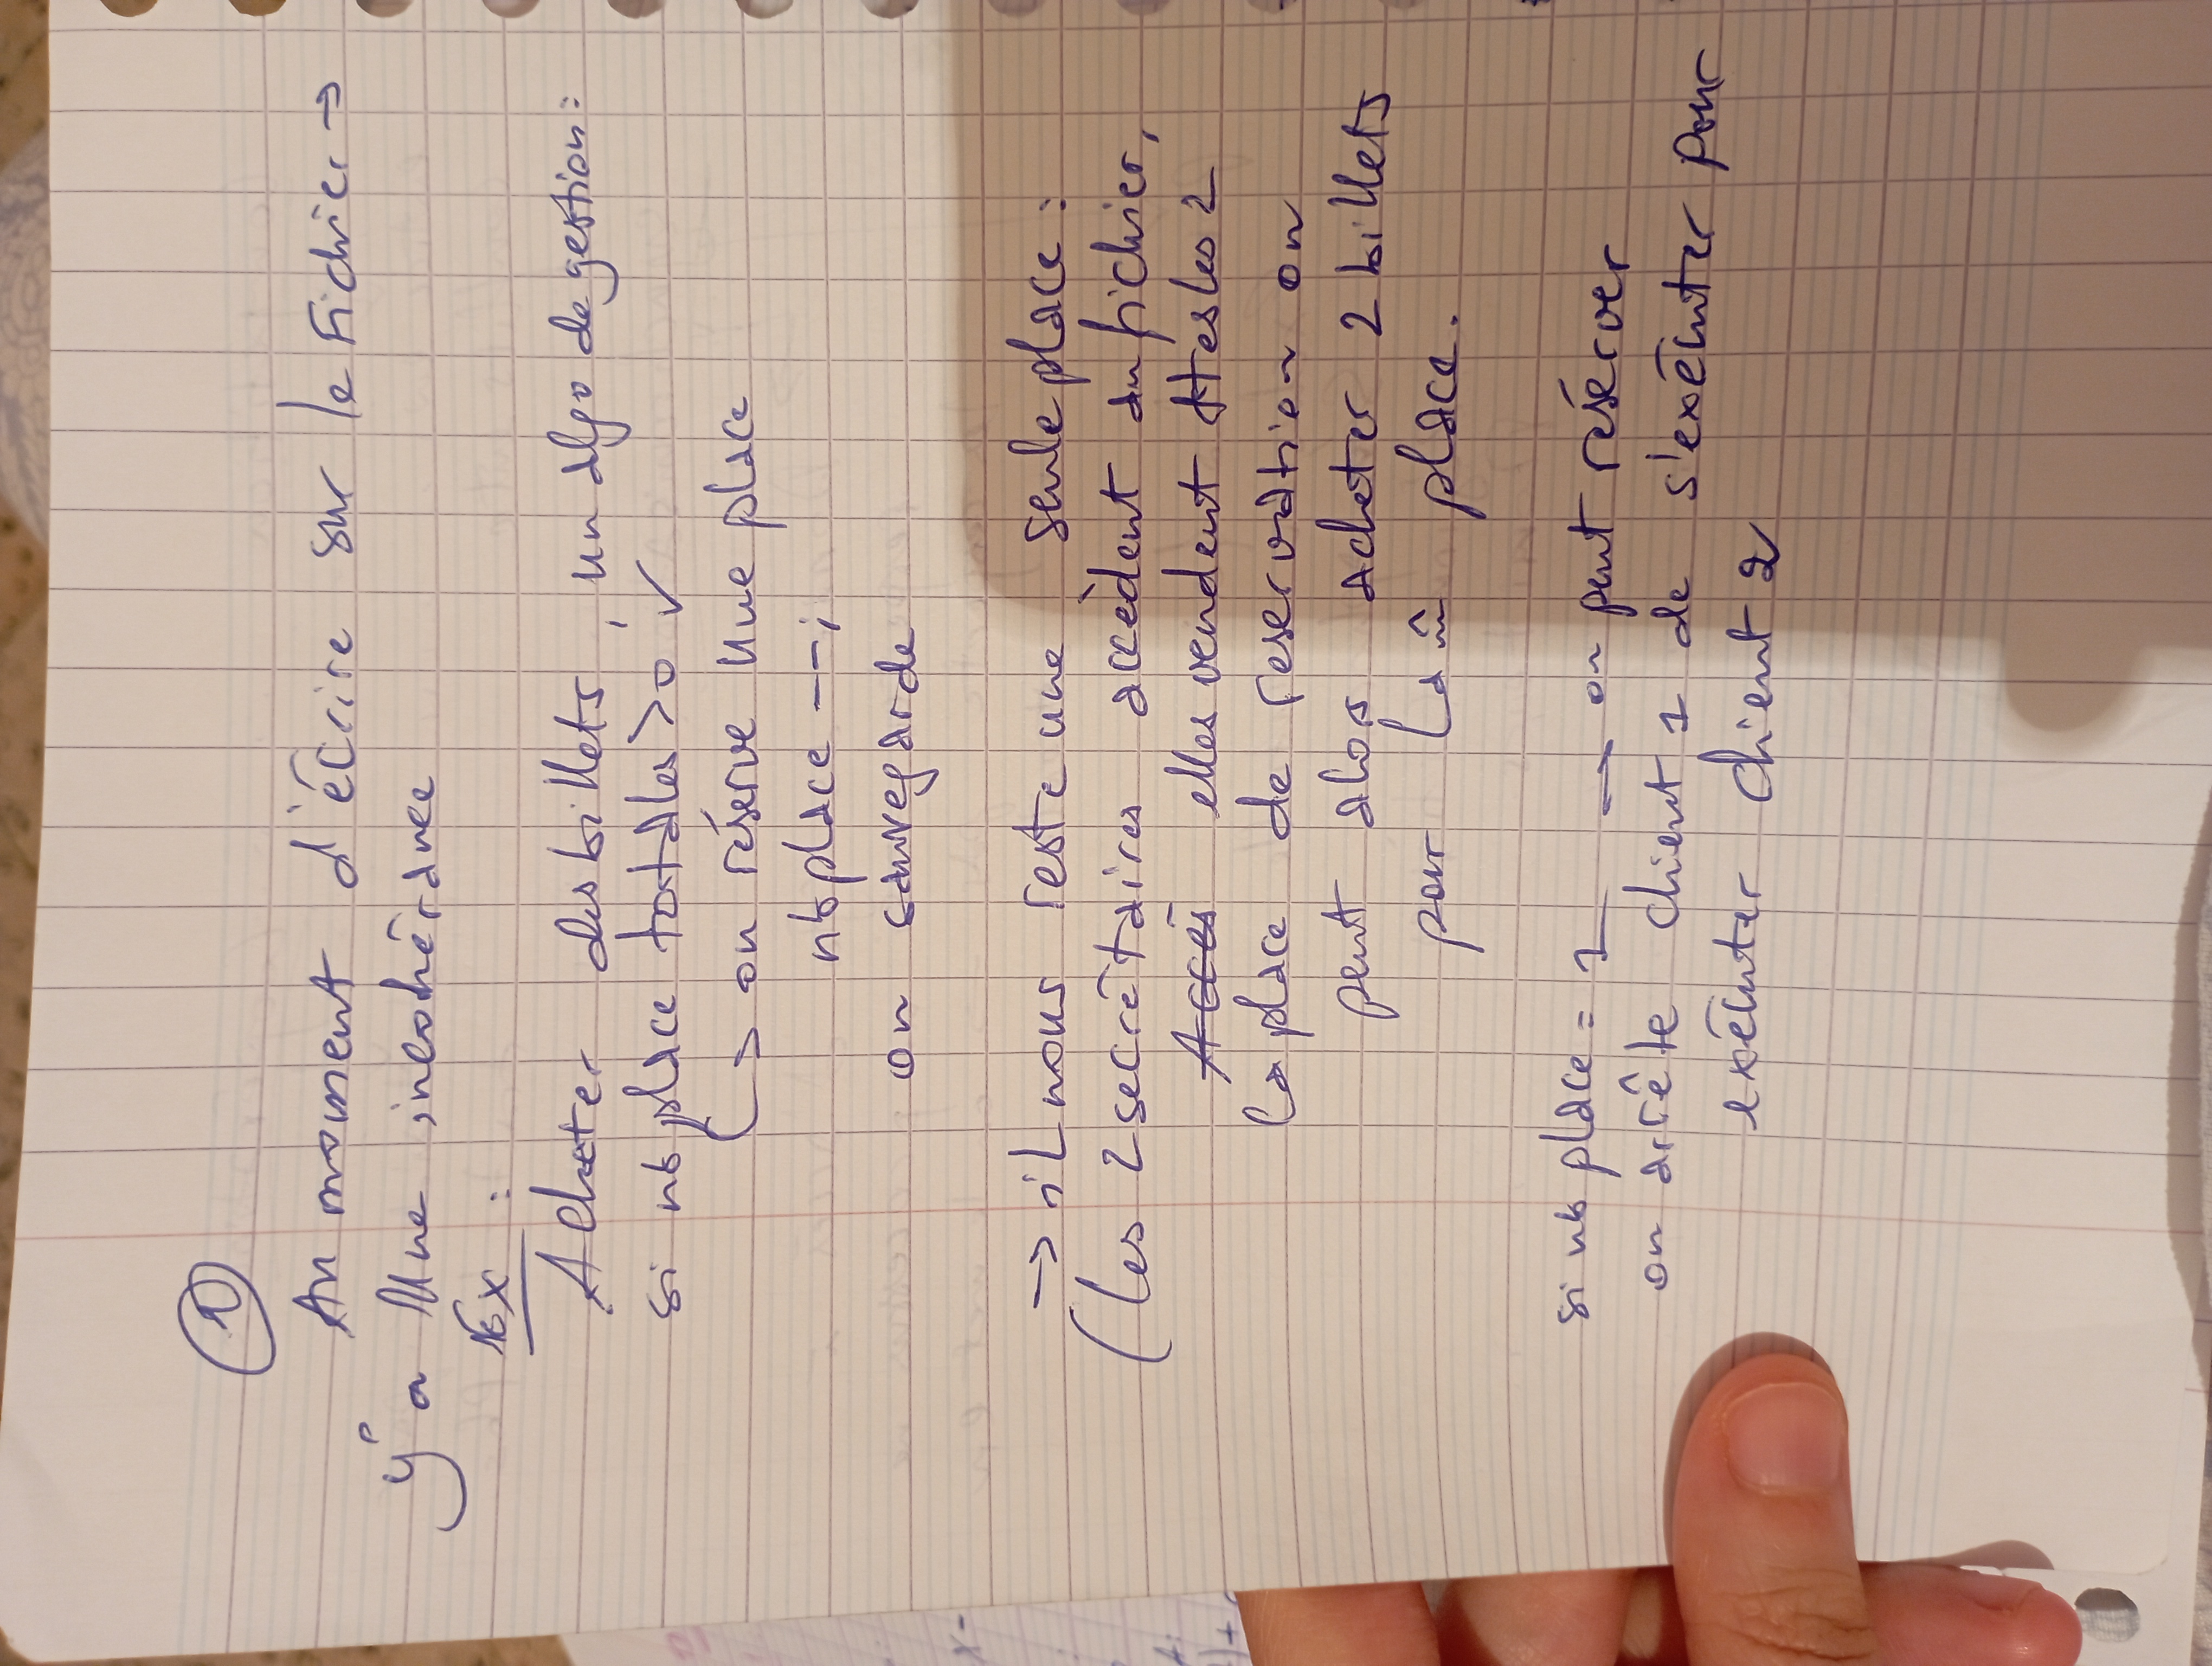 ①
Au moment d'écrire sur le fichier →
y'a une incohérance
Ex :
Acheter des billets, un algo de gestion:
si nb place totales >0 ✓
↳ on réserve une place
nb place --;
on sauvegarde
→ il nous reste une seule place :
(les 2 secrétaires accèdent au fichier,
Accés elles vendent ttes les 2
la place de reservation on
peut alors acheter 2 billets
pour la m̂ place.
si nb place = 1 → on peut réserver
on arrête client 1 de s'exécuter pour
exécuter client 2